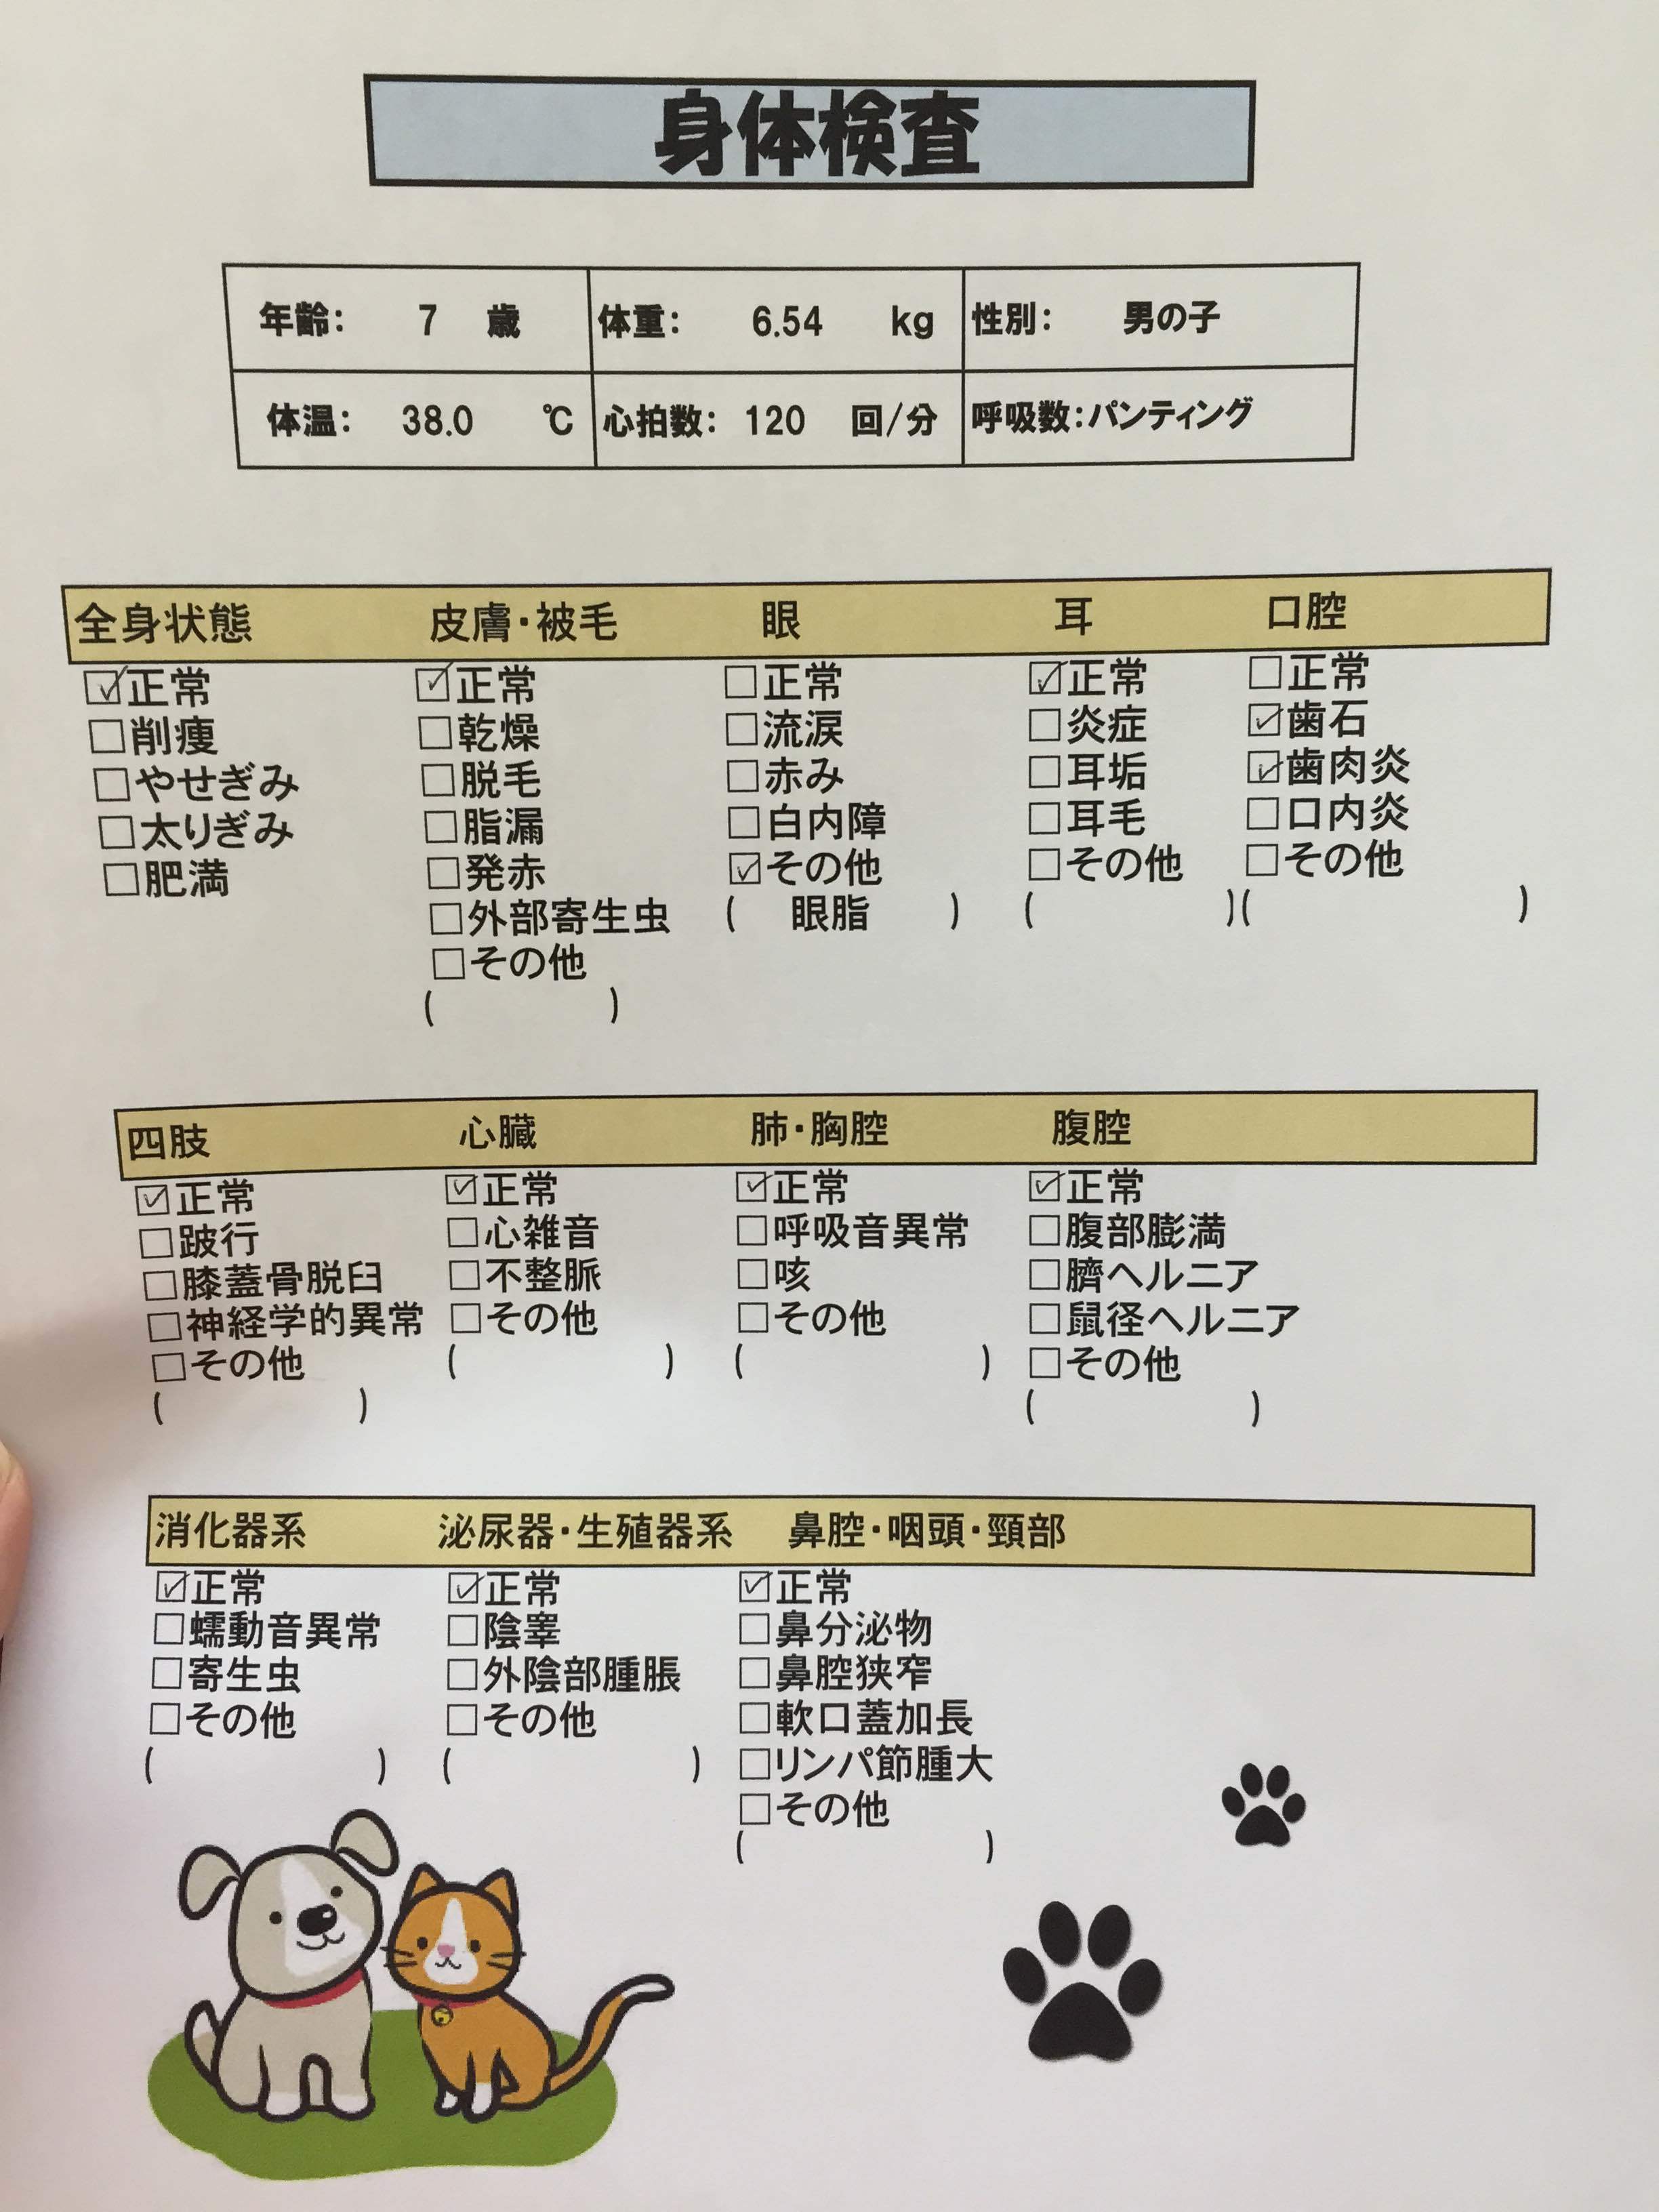 身体検査
年齢： 7 歳 体重： 6.54 kg 性別： 男の子
体温： 38.0 ℃ 心拍数： 120 回/分 呼吸数：パンティング
全身状態 皮膚・被毛 眼 耳 口腔
☑正常 ☑正常 □正常 ☑正常 □正常
□削痩 □乾燥 □流涙 □炎症 ☑歯石
□やせぎみ □脱毛 □赤み □耳垢 ☑歯肉炎
□太りぎみ □脂漏 □白内障 □耳毛 □口内炎
□肥満 □発赤 ☑その他 □その他 □その他
□外部寄生虫 ( 眼脂 ) ( ) ( )
□その他
( )
四肢 心臓 肺・胸腔 腹腔
☑正常 ☑正常 ☑正常 ☑正常
□跛行 □心雑音 □呼吸音異常 □腹部膨満
□膝蓋骨脱臼 □不整脈 □咳 □臍ヘルニア
□神経学的異常 □その他 □その他 □鼠径ヘルニア
□その他 ( ) ( ) □その他
( ) ( )
消化器系 泌尿器・生殖器系 鼻腔・咽頭・頸部
☑正常 ☑正常 ☑正常
□蠕動音異常 □陰睾 □鼻分泌物
□寄生虫 □外陰部腫脹 □鼻腔狭窄
□その他 □その他 □軟口蓋加長
( ) ( ) □リンパ節腫大
□その他
( )